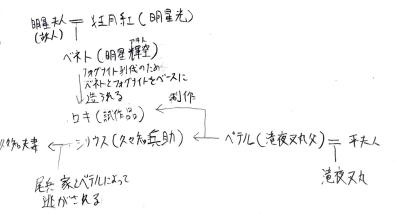 明星夫人 = 狂月紅(明星光)
(鉄人)
ベネト(明星輝空)
フォグナイト討伐のため
ベネトとフォグナイトをベースに
造られる
制作
ロキ(試作品)
久々知夫妻 ← シリウス(久々知兵助) ← ベテル(滝夜叉丸父) = 平夫人
尾兵家とベテルによって
逃がされる
滝夜叉丸